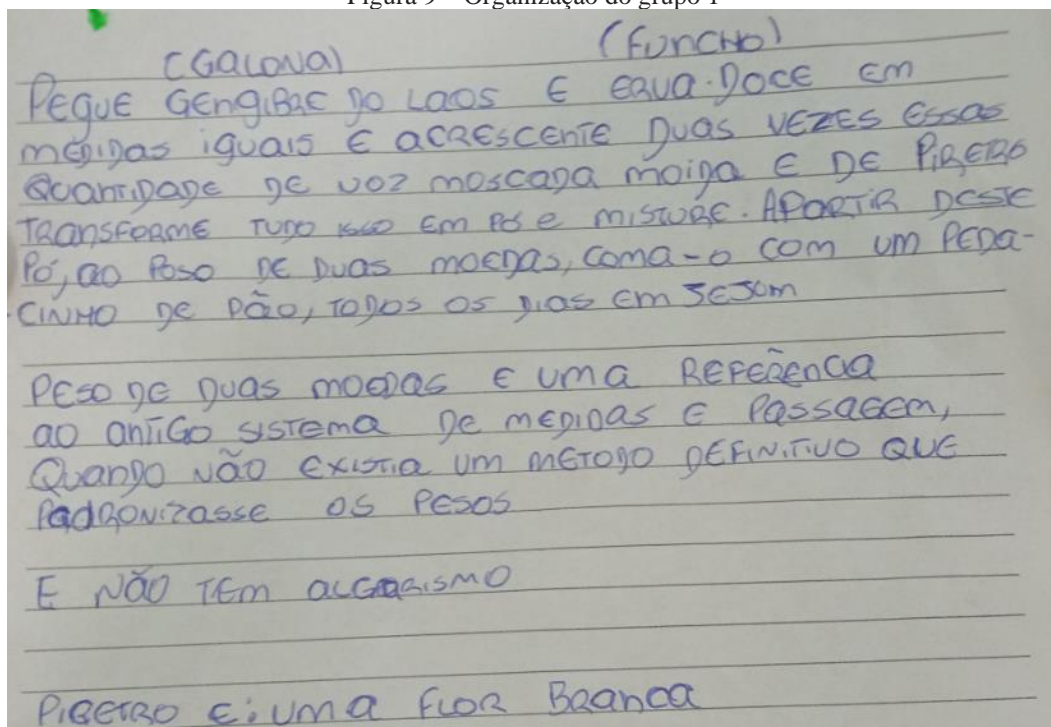 Figura 9 – Organização do grupo 1
(GALONA) (FUNCHO)
PEGUE GENGIBRE DO LAOS E ERVA-DOCE EM
MEDIDAS IGUAIS E ACRESCENTE DUAS VEZES ESSAS
QUANTIDADE DE NOZ MOSCADA MOIDA E DE PIRETRO
TRANSFORME TUDO ISSO EM PÓ E MISTURE. APARTIR DESTE
PÓ, AO PESO DE DUAS MOEDAS, COMA-O COM UM PEDA-
CINHO DE PÃO, TODOS OS DIAS EM JEJUM
PESO DE DUAS MOEDAS E UMA REFERÊNCIA
AO ANTIGO SISTEMA DE MEDIDAS E PASSAGEM,
QUANDO NÃO EXISTIA UM METODO DEFINITIVO QUE
PADRONIZASSE OS PESOS
E NÃO TEM ALGARISMO
PIRETRO E: UMA FLOR BRANCA